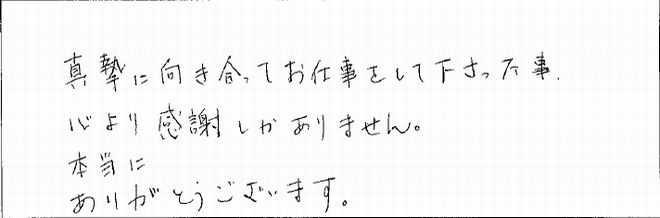 真摯に向き合ってお仕事をして下さった事、
心より感謝しかありません。
本当に
ありがとうございます。